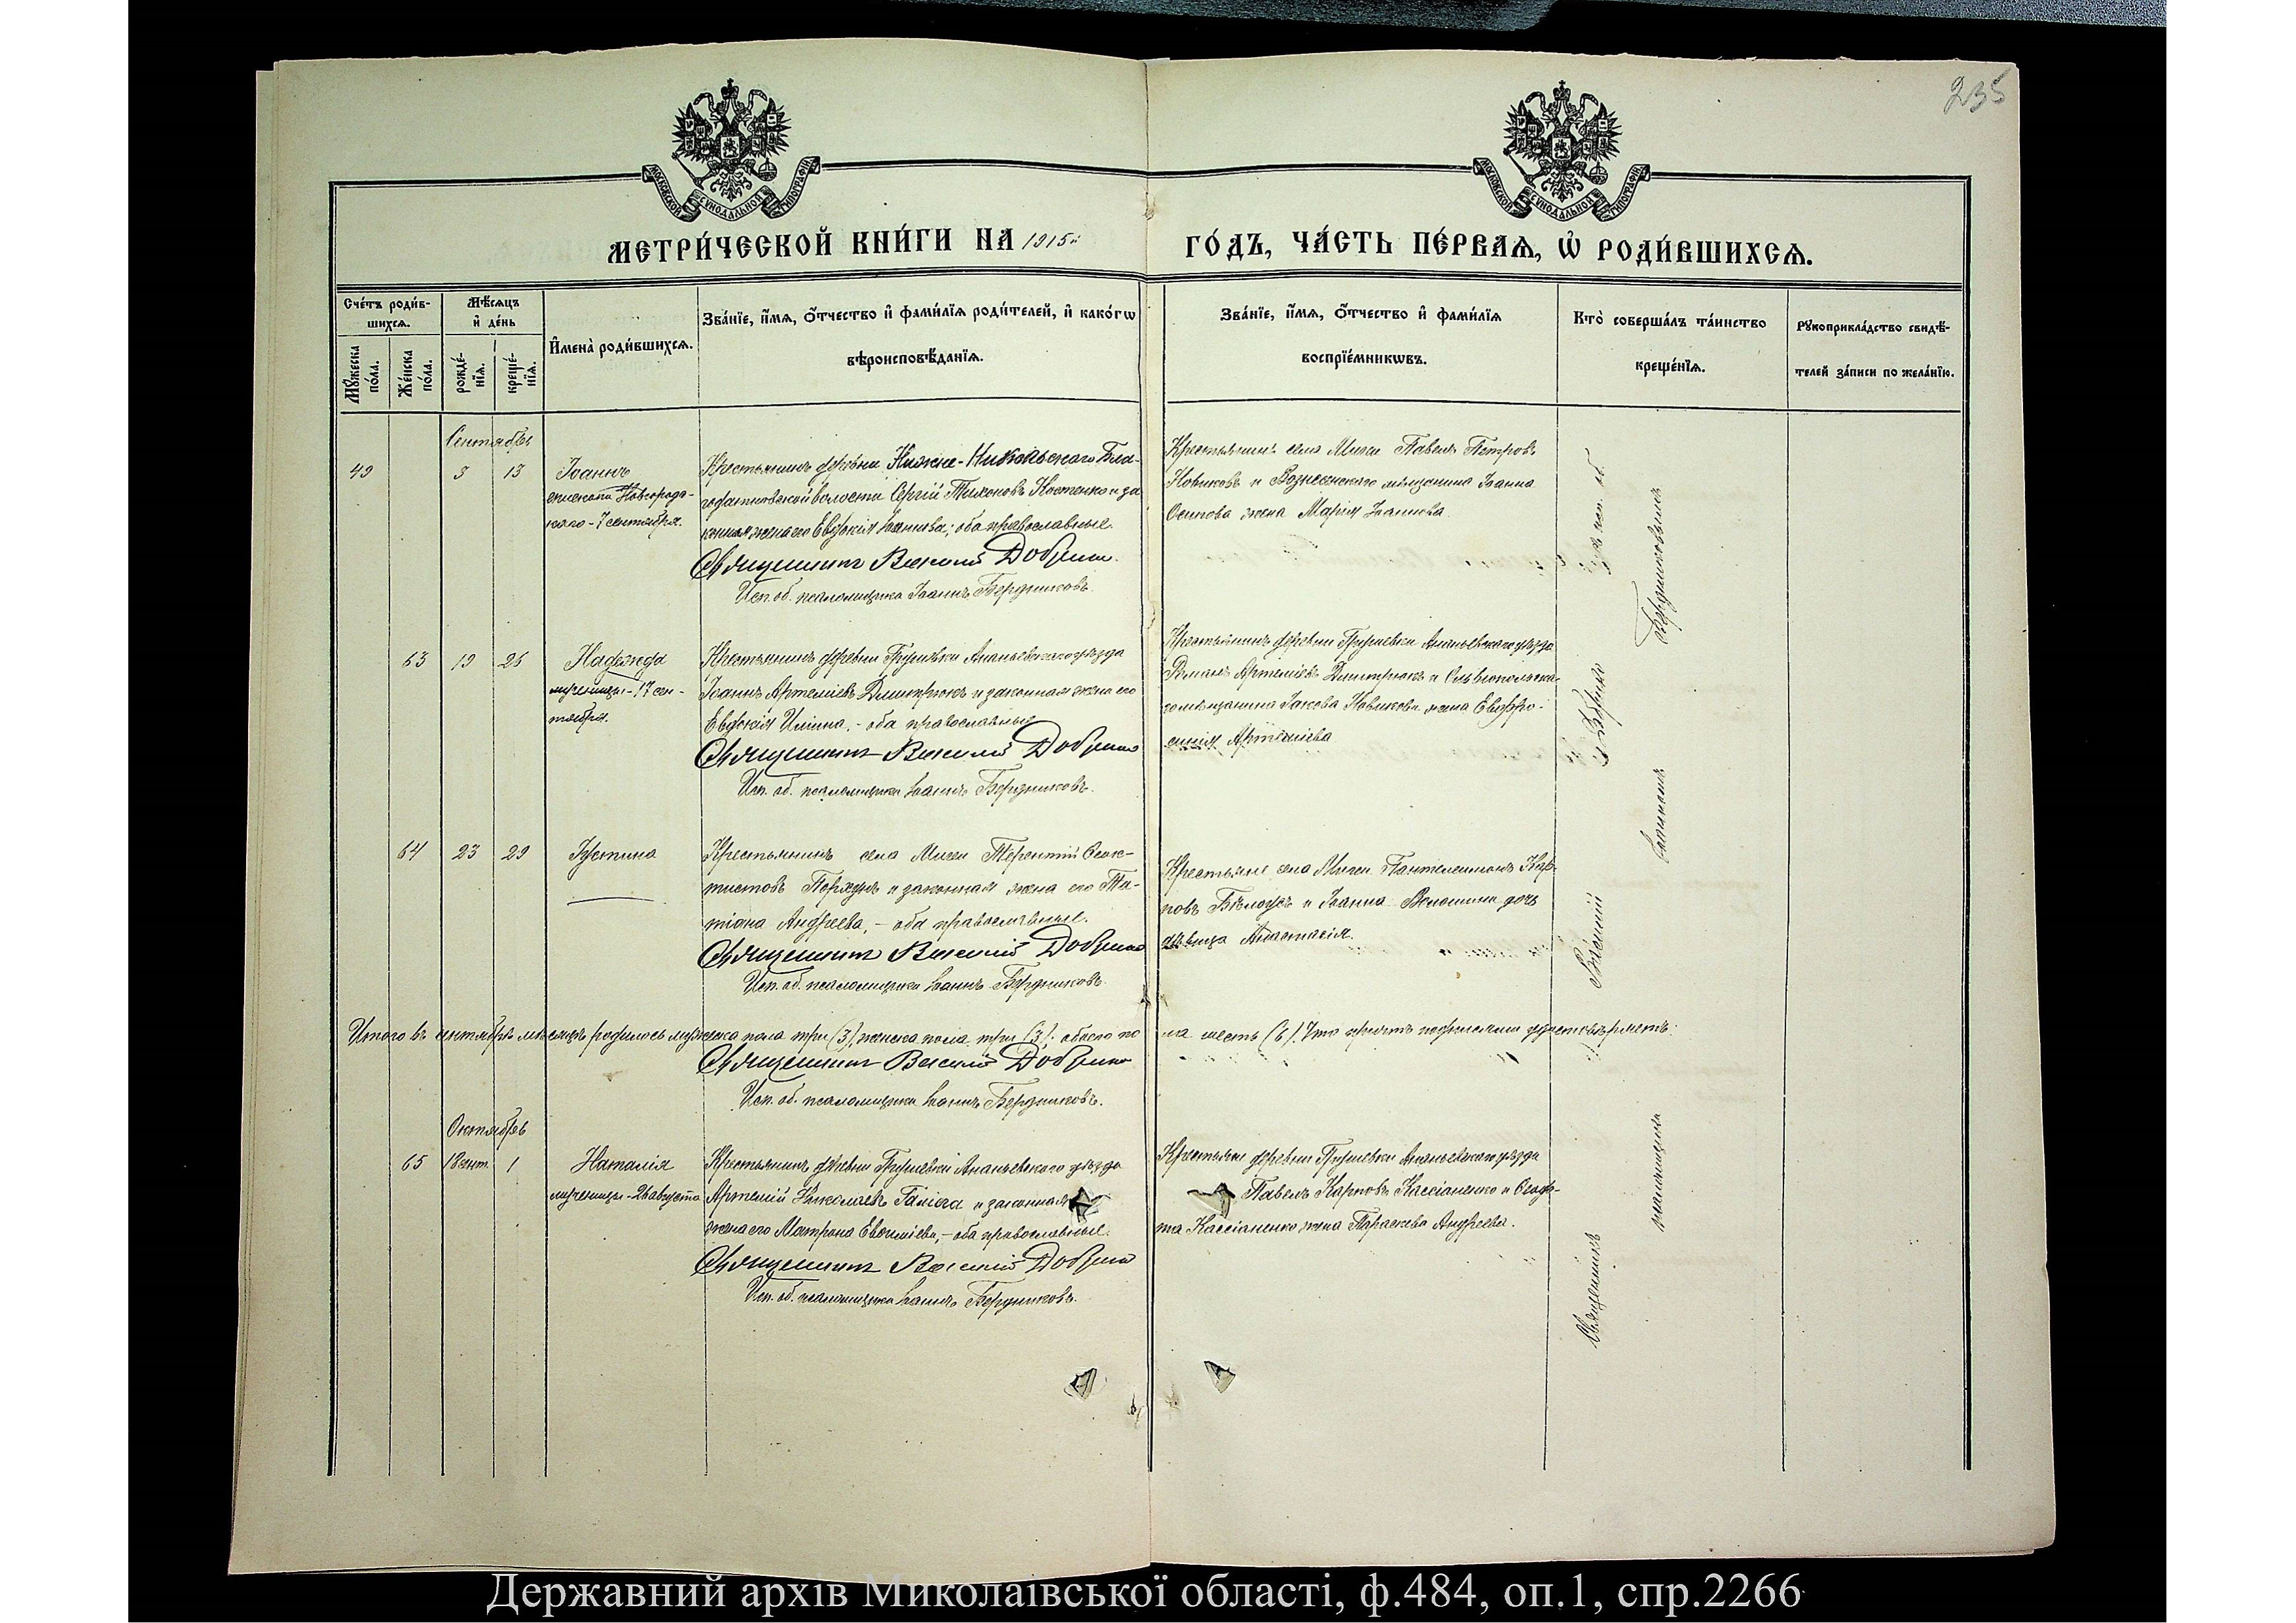 235
МОСКОВСКОЙ СУНОДАЛЬНОЙ ТИПОГРАФІИ
МОСКОВСКОЙ СУНОДАЛЬНОЙ ТИПОГРАФІИ
МЕТРИ́ЧЕСКОЙ КНИ́ГИ НА 1915й ГО́ДЪ, ЧА́СТЬ ПЕ́РВАѦ, Ѡ҆ РОДИ́ВШИХСѦ.
Сче́тъ роди́в-
шихсѧ.
Мꙋ́жеска по́ла.
Же́нска по́ла.
Мѣ́сѧцъ
и҆ де́нь
рожде́-нїѧ.
креще́-нїѧ.
И҆мена̀ роди́вшихсѧ.
Зва́нїе, и҆́мѧ, ѻ҆́тчество и҆ фами́лїѧ роди́телей, и҆ како́гѡ
вѣроисповѣ́данїѧ.
Зва́нїе, и҆́мѧ, ѻ҆́тчество и҆ фами́лїѧ
воспрїе́мникѡвъ.
Кто̀ соверша́лъ та́инство
креще́нїѧ.
Рꙋкоприкла́дство свидѣ́-
телей за́писи по жела́нїю.
Сентябрь
49 3 13 Іоаннъ
епископа Новгород-
скаго - 7 сентября.
Крестьянинъ деревни Нижне-Никольскаго Бла-
годатновской волости Сергій Тихоновъ Костенко и за
конная жена его Евдокія Іоаннова; оба православные.
Священникъ Василій Добрин
Исп. об. псаломщика Іоаннъ Бердниковъ.
Крестьянинъ села Мигеи Павелъ Петровъ
Новиковъ и Вознесенскаго мещанина Іоанна
Осипова жена Марія Іоаннова
63 19 26 Надежда
мученицы - 17 сен-
тября.
Крестьянинъ деревни Грушевки Ананьевскаго уѣзда
Іоаннъ Артеміевъ Дмитрюкъ и законная жена его
Евдокія Иліина, - оба православные
Священникъ Василій Добрин
Исп. об. псаломщика Іоаннъ Бердниковъ.
Крестьянинъ деревни Грушевки Ананьевскаго уѣзда
Романъ Артеміевъ Дмитрюкъ и Ольвіопольска-
го мѣщанина Іакова Новикова жена Евфро-
синія Артеміева
64 23 29 Іустина
Крестьянинъ села Мигеи Терентій Ѳеок-
тистовъ и законная жена его Та-
тіана Андреева, - оба православные.
Священникъ Василій Добрин
Исп. об. псаломщика Іоаннъ Бердниковъ.
Крестьяне села Мигеи Пантелеимонъ Кар-
повъ Бѣлоусъ и Іоанна Волошина дочь
дѣвица Анастасія.
Итого въ сентябрѣ мѣсяцѣ родилось мужеска пола три (3), женска пола три (3); обоего по ла шесть (6). Что причтъ подписями удостовѣряетъ.
Священникъ Василій Добрин
Исп. об. псаломщика Іоаннъ Бердниковъ.
Октябрь
65 18 сент. 1 Наталія
мученицы - 26 августа
Крестьянинъ деревни Грушевки Ананьевскаго уѣзда
Артемій Николаевъ и законная
жена его Матрона Евѳиміева, - оба православные.
Священникъ Василій Добрин
Исп. об. псаломщика Іоаннъ Бердниковъ.
Крестьяне деревни Грушевки Ананьевскаго уѣзда
Павелъ Карповъ Кассіаненко и Ѳеодо-
та Кассіаненко жена Параскева Андреева.
Священникъ Василій Добрин съ исп. об.
псаломщика Іоанномъ Бердниковымъ
Державний архів Миколаївської області, ф.484, оп.1, спр.2266